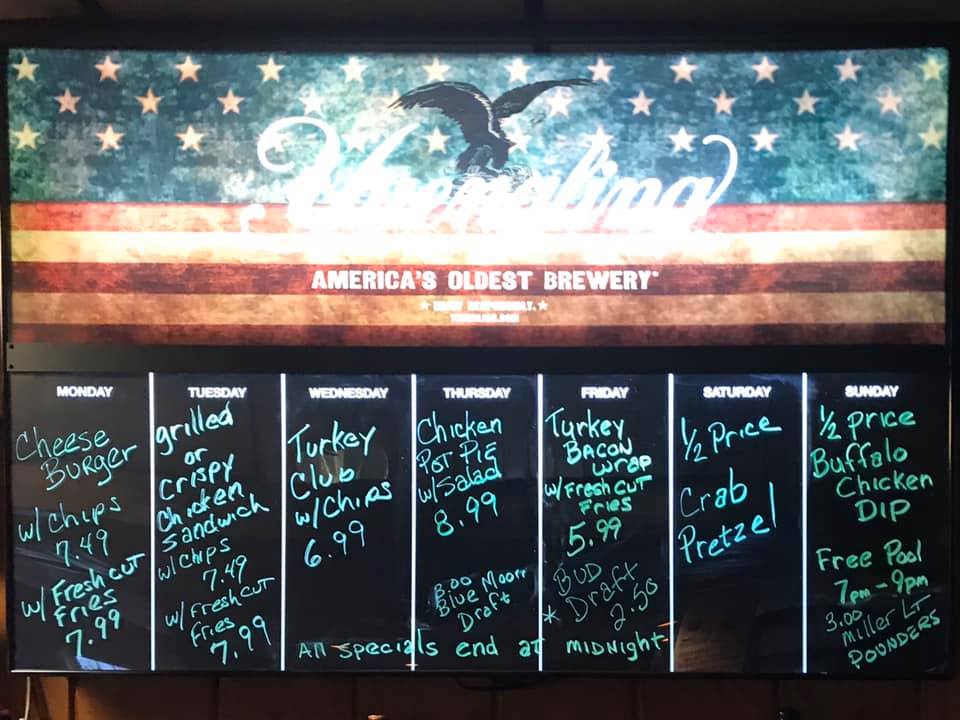 Yuengling
AMERICA'S OLDEST BREWERY
YUENGLING.COM
MONDAY
Cheese
Burger
w/ Chips
7.49
w/ Fresh cut
Fries
7.99
TUESDAY
grilled
or
Crispy
Chicken
Sandwich
w/ Chips
7.49
w/ Fresh cut
Fries
7.99
WEDNESDAY
Turkey
Club
w/ Chips
6.99
THURSDAY
Chicken
Pot Pie
w/ Salad
8.99
3.00
Blue Moon
Draft
FRIDAY
Turkey
Bacon
Wrap
w/ Fresh cut
Fries
5.99
Bud
* Draft
2.50
SATURDAY
1/2 Price
Crab
Pretzel
SUNDAY
1/2 price
Buffalo
Chicken
Dip
Free Pool
7pm - 9pm
3.00
Miller LT
POUNDERS
All specials end at MIDNIGHT